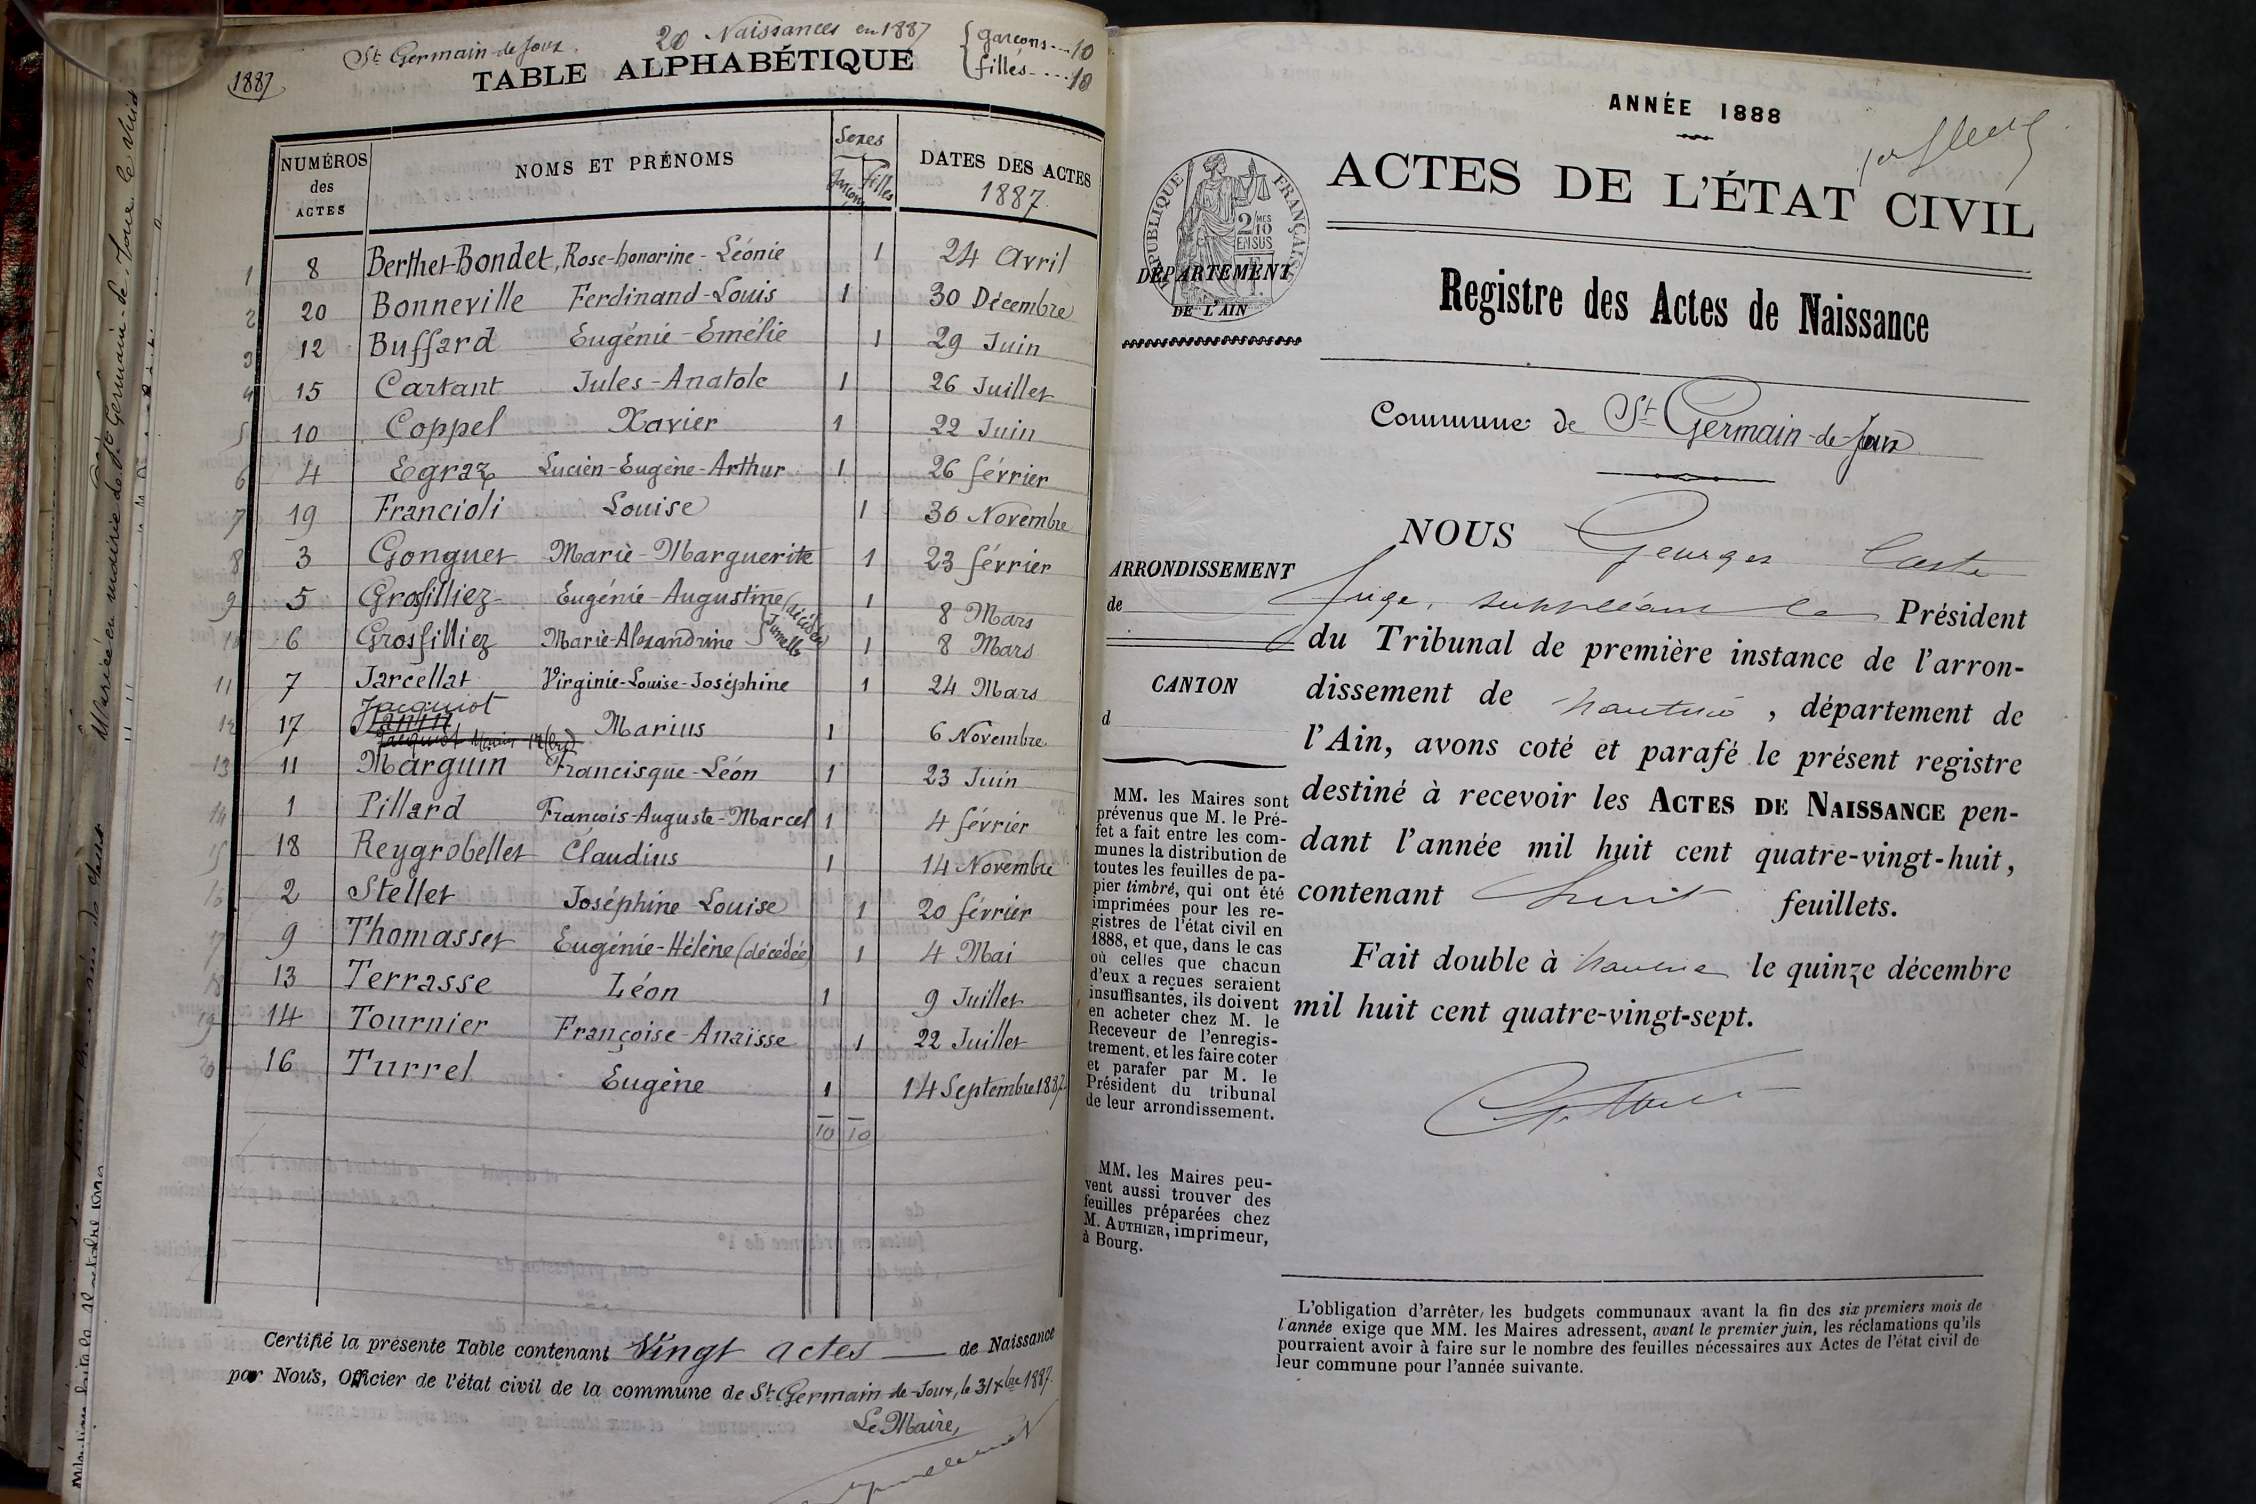 1887
St Germain-de-Joux.
20 Naissances en 1887
garçons....10
filles.....10
TABLE ALPHABÉTIQUE
NUMÉROS des ACTES
NOMS ET PRÉNOMS
Sexes
garçons filles
DATES DES ACTES
1887.
1 8 Berthet-Bondet, Rose-honorine-Léonie 1 24 Avril
2 20 Bonneville Ferdinand-Louis 1 30 Décembre
3 12 Buffard Eugénie-Emélie 1 29 Juin
4 15 Cartant Jules-Anatole 1 26 Juillet
5 10 Coppel Xavier 1 22 Juin
6 4 Egraz Lucien-Eugène-Arthur 1 26 février
7 19 Francioli Louise 1 30 Novembre
8 3 Gonguet Marie-Marguerite 1 23 février
9 5 Grosfilliez Eugénie-Augustine (décédée) 1 8 Mars
Jumelles
10 6 Grosfilliez Marie-Alexandrine 1 8 Mars
11 7 Jarcellat Virginie-Louise-Joséphine 1 24 Mars
Jacquiot
12 17 Marius 1 6 Novembre
13 11 Marguin Francisque-Léon 1 23 Juin
14 1 Pillard François-Auguste-Marcel 1 4 février
15 18 Reygrobellet Claudius 1 14 Novembre
16 2 Stellet Joséphine Louise 1 20 février
17 9 Thomasset Eugénie-Hélène (décédée) 1 4 Mai
18 13 Terrasse Léon 1 9 Juillet
19 14 Tournier Françoise-Anaïsse 1 22 Juillet
20 16 Turrel Eugène 1 14 Septembre 1887
10 10
Certifié la présente Table contenant Vingt actes de Naissance
par Nous, Officier de l'état civil de la commune de St Germain-de-Joux, le 31 Xbre 1887.
Le Maire,
ANNÉE 1888
ACTES DE L'ÉTAT CIVIL
RÉPUBLIQUE FRANÇAISE
2/10
EN SUS
DÉPARTEMENT
DE L'AIN
Registre des Actes de Naissance
Commune de St Germain-de-Joux
ARRONDISSEMENT
de
CANTON
d
NOUS Georges
Juge, suppléant le Président
du Tribunal de première instance de l'arron-
dissement de Nantua, département de
l'Ain, avons coté et parafé le présent registre
destiné à recevoir les ACTES DE NAISSANCE pen-
dant l'année mil huit cent quatre-vingt-huit,
contenant huit feuillets.
Fait double à Nantua le quinze décembre
mil huit cent quatre-vingt-sept.
MM. les Maires sont
prévenus que M. le Pré-
fet a fait entre les com-
munes la distribution de
toutes les feuilles de pa-
pier timbré, qui ont été
imprimées pour les re-
gistres de l'état civil en
1888, et que, dans le cas
où celles que chacun
d'eux a reçues seraient
insuffisantes, ils doivent
en acheter chez M. le
Receveur de l'enregis-
trement, et les faire coter
et parafer par M. le
Président du tribunal
de leur arrondissement.
MM. les Maires peu-
vent aussi trouver des
feuilles préparées chez
M. AUTHIER, imprimeur,
à Bourg.
L'obligation d'arrêter les budgets communaux avant la fin des six premiers mois de
l'année exige que MM. les Maires adressent, avant le premier juin, les réclamations qu'ils
pourraient avoir à faire sur le nombre des feuilles nécessaires aux Actes de l'état civil de
leur commune pour l'année suivante.